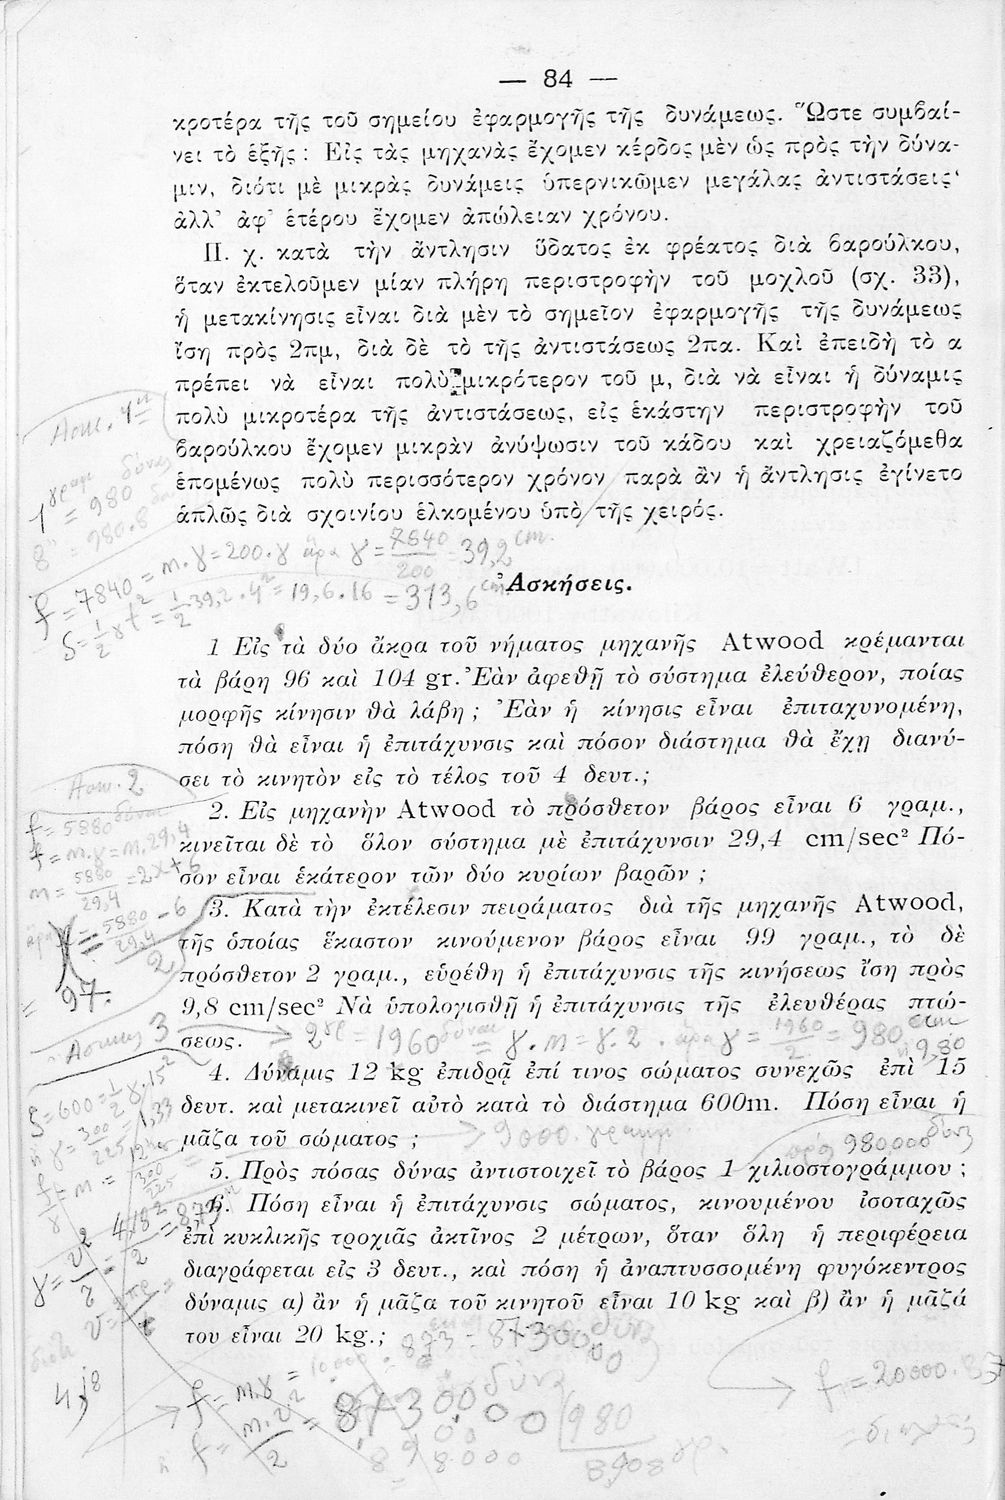 — 84 —
κροτέρα τῆς τοῦ σημείου ἐφαρμογῆς τῆς δυνάμεως. Ὥστε συμβαί-
νει τὸ ἑξῆς : Εἰς τὰς μηχανὰς ἔχομεν κέρδος μὲν ὡς πρὸς τὴν δύνα-
μιν, διότι μὲ μικρὰς δυνάμεις ὑπερνικῶμεν μεγάλας ἀντιστάσεις·
ἀλλ’ ἀφ’ ἑτέρου ἔχομεν ἀπώλειαν χρόνου.
Π. χ. κατὰ τὴν ἄντλησιν ὕδατος ἐκ φρέατος διὰ βαρούλκου,
ὅταν ἐκτελοῦμεν μίαν πλήρη περιστροφὴν τοῦ μοχλοῦ (σχ. 33),
ἡ μετακίνησις εἶναι διὰ μὲν τὸ σημεῖον ἐφαρμογῆς τῆς δυνάμεως
ἴση πρὸς 2πμ, διὰ δὲ τὸ τῆς ἀντιστάσεως 2πα. Καὶ ἐπειδὴ τὸ α
πρέπει νὰ εἶναι πολὺ μικρότερον τοῦ μ, διὰ νὰ εἶναι ἡ δύναμις
Ασκ. 1η
πολὺ μικροτέρα τῆς ἀντιστάσεως, εἰς ἑκάστην περιστροφὴν τοῦ
βαρούλκου ἔχομεν μικρὰν ἀνύψωσιν τοῦ κάδου καὶ χρειαζόμεθα
ἑπομένως πολὺ περισσότερον χρόνον παρὰ ἂν ἡ ἄντλησις ἐγίνετο
1 γραμ = 980 δύνας
ἁπλῶς διὰ σχοινίου ἑλκομένου ὑπὸ τῆς χειρός.
8" = 980.8
f = 7840 = m.γ = 200.γ ἄρα γ = 7840/200 = 39,2 cm.
S = 1/2 γ t² = 1/2 39,2.4² = 19,6.16 = 313,6 cm.
Ἀσκήσεις.
1 Εἰς τὰ δύο ἄκρα τοῦ νήματος μηχανῆς Atwood κρέμανται
τὰ βάρη 96 καὶ 104 gr. Ἐὰν ἀφεθῇ τὸ σύστημα ἐλεύθερον, ποίας
μορφῆς κίνησιν θὰ λάβῃ ; Ἐὰν ἡ κίνησις εἶναι ἐπιταχυνομένη,
πόση θὰ εἶναι ἡ ἐπιτάχυνσις καὶ πόσον διάστημα θὰ ἔχῃ διανύ-
σει τὸ κινητὸν εἰς τὸ τέλος τοῦ 4 δευτ.;
Ασκ. 2
2. Εἰς μηχανὴν Atwood τὸ πρόσθετον βάρος εἶναι 6 γραμ.,
f = 5880 δύναι
κινεῖται δὲ τὸ ὅλον σύστημα μὲ ἐπιτάχυνσιν 29,4 cm/sec² Πό-
f = m.γ = m.29,4
σον εἶναι ἑκάτερον τῶν δύο κυρίων βαρῶν ;
m = 5880/29,4 = 2x+6
3. Κατὰ τὴν ἐκτέλεσιν πειράματος διὰ τῆς μηχανῆς Atwood,
τῆς ὁποίας ἕκαστον κινούμενον βάρος εἶναι 99 γραμ., τὸ δὲ
πρόσθετον 2 γραμ., εὑρέθη ἡ ἐπιτάχυνσις τῆς κινήσεως ἴση πρὸς
= 97.
9,8 cm/sec² Νὰ ὑπολογισθῇ ἡ ἐπιτάχυνσις τῆς ἐλευθέρας πτώ-
σεως.
2γρ = 1960 δύναι = γ.m = γ.2 . ἄρα γ = 1960/2 = 980 cm
9,80
Ασκησις 3
4. Δύναμις 12 kg ἐπιδρᾷ ἐπί τινος σώματος συνεχῶς ἐπὶ 15
δευτ. καὶ μετακινεῖ αὐτὸ κατὰ τὸ διάστημα 600m. Πόση εἶναι ἡ
S = 600 = 1/2 γ.15²
μᾶζα τοῦ σώματος ;
9000. γραμμ.
980.000 δύνς
5. Πρὸς πόσας δύνας ἀντιστοιχεῖ τὸ βάρος 1 χιλιοστογράμμου ;
6. Πόση εἶναι ἡ ἐπιτάχυνσις σώματος, κινουμένου ἰσοταχῶς
ἐπὶ κυκλικῆς τροχιᾶς ἀκτῖνος 2 μέτρων, ὅταν ὅλη ἡ περιφέρεια
διαγράφεται εἰς 3 δευτ., καὶ πόση ἡ ἀναπτυσσομένη φυγόκεντρος
δύναμις α) ἂν ἡ μᾶζα τοῦ κινητοῦ εἶναι 10 kg καὶ β) ἂν ἡ μᾶζά
του εἶναι 20 kg.;
4,18
f = m.γ = 10.000
f = 20000.
87300000 δύνς
980